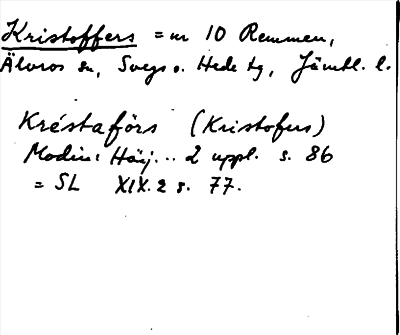 Kristoffers = nr 10 Remmen,
Älvros sn, Svegs o. Hede tg, Jämtl. l.
Kréstaförs (Kristofers)
Modin: Härj... 2 uppl. s. 86
= SL XIX.2 s. 77.